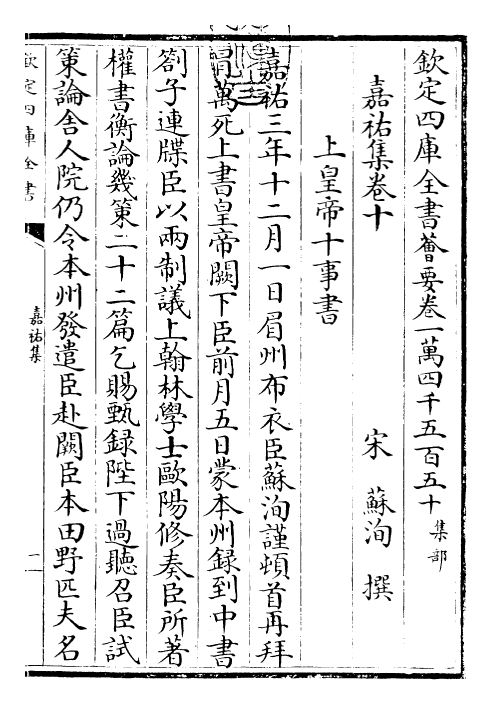 欽定四庫全書薈要卷一萬四千五百五十 集部
嘉祐集卷十
宋 蘇洵 撰
上皇帝十事書
嘉祐三年十二月一日眉州布衣臣蘇洵謹頓首再拜
冐萬死上書皇帝闕下臣前月五日蒙本州録到中書
劄子連牒臣以兩制議上翰林學士歐陽修奏臣所著
權書衡論幾策二十二篇乞賜甄録陛下過聽召臣試
策論舍人院仍令本州發遣臣赴闕臣本田野匹夫名
欽定四庫全書
嘉祐集
一